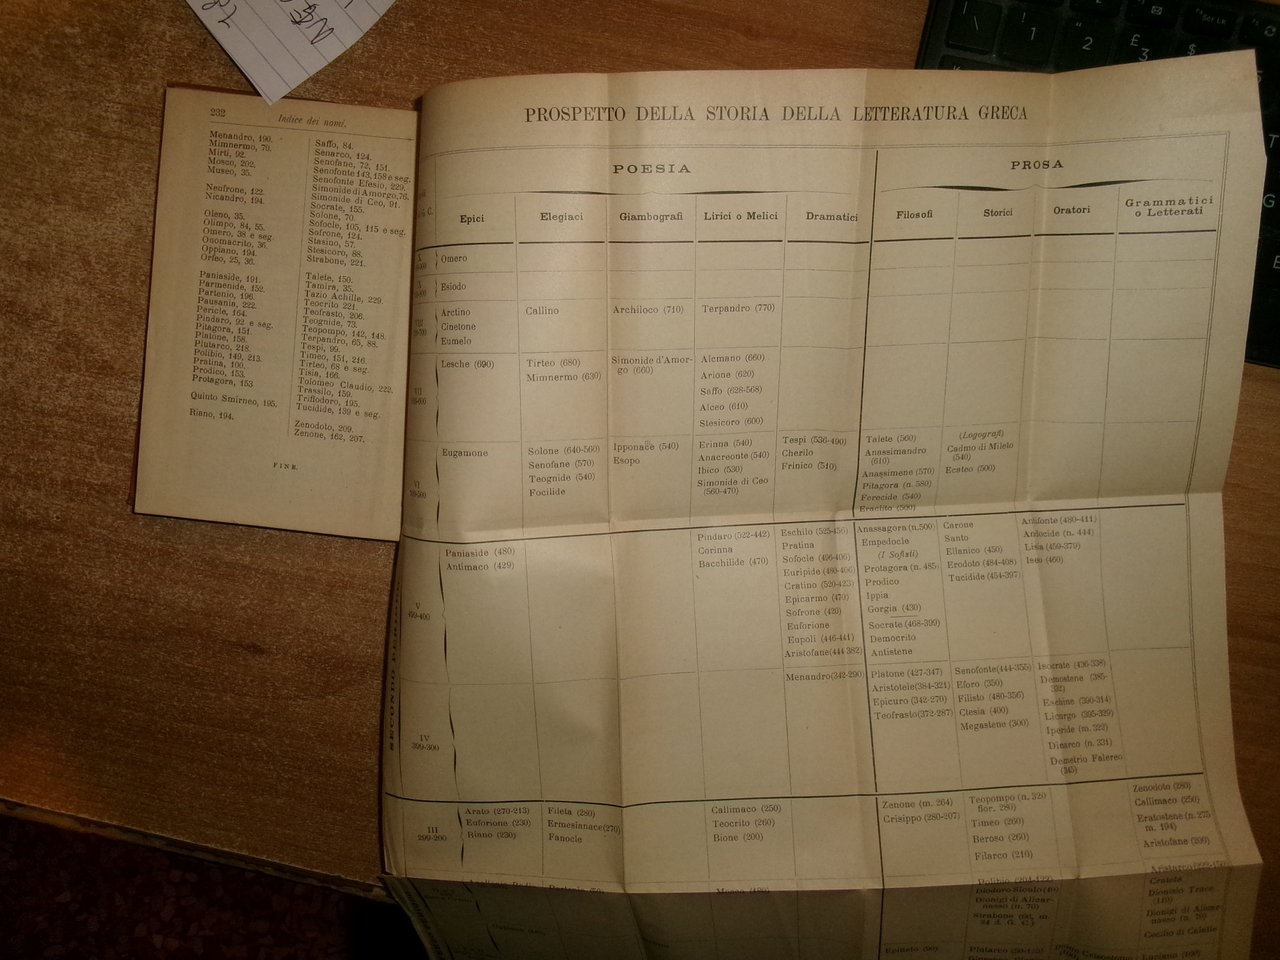 232
Indice dei nomi.
Menandro, 190.
Mimnermo, 70.
Mirti, 92.
Mosco, 202.
Museo, 35.
Neufrone, 122.
Nicandro, 194.
Oleno, 35.
Olimpo, 84, 55.
Omero, 38 e seg.
Onomacrito, 36.
Oppiano, 194.
Orfeo, 25, 36.
Paniaside, 191.
Parmenide, 152.
Partenio, 196.
Pausania, 222.
Pericle, 164.
Pindaro, 92 e seg.
Pitagora, 151.
Platone, 158.
Plutarco, 218.
Polibio, 149, 213.
Pratina, 100.
Prodico, 153.
Protagora, 153
Quinto Smirneo, 195.
Riano, 194.
Saffo, 84.
Senarco, 124.
Senofane, 72, 151.
Senofonte 143, 158 e seg.
Senofonte Efesio, 229.
Simonide di Amorgo, 76.
Simonide di Ceo, 91.
Socrate, 155.
Solone, 70.
Sofocle, 105, 115 e seg.
Sofrone, 124.
Stasino, 57.
Stesicoro, 88.
Strabone, 221.
Talete, 150.
Tamira, 35.
Tazio Achille, 229.
Teocrito 221.
Teofrasto, 206.
Teognide, 73.
Teopompo, 142, 148.
Terpandro, 65, 88.
Tespi, 99.
Timeo, 151, 216.
Tirteo, 68 e seg.
Tisia, 166.
Tolomeo Claudio, 222.
Trassilo, 159.
Trifiodoro, 195.
Tucidide, 139 e seg.
Zenodoto, 209.
Zenone, 162, 207.
FINE.
PROSPETTO DELLA STORIA DELLA LETTERATURA GRECA
POESIA
PROSA
Epici
Elegiaci
Giambografi
Lirici o Melici
Dramatici
Filosofi
Storici
Oratori
Grammatici
o Letterati
Omero
Esiodo
Arctino
Cinetone
Eumelo
Callino
Archiloco (710)
Terpandro (770)
VII
Lesche (690)
Tirteo (680)
Mimnermo (630)
Simonide d'Amor-
go (660)
Alcmano (660)
Arione (620)
Saffo (628-568)
Alceo (610)
Stesicoro (600)
VI
Eugamone
Solone (640-560)
Senofane (570)
Teognide (540)
Focilide
Ipponace (540)
Esopo
Erinna (540)
Anacreonte (540)
Ibico (530)
Simonide di Ceo
(560-470)
Tespi (536-490)
Cherilo
Frinico (510)
Talete (560)
Anassimandro
(610)
Anassimene (570)
Pitagora (n. 580)
Ferecide (540)
Eraclito (500)
(Logografi)
Cadmo di Mileto
(540)
Ecateo (500)
V
499-400
Paniaside (480)
Antimaco (429)
Pindaro (522-442)
Corinna
Bacchilide (470)
Eschilo (525-456)
Pratina
Sofocle (496-406)
Euripide (480-406)
Cratino (520-423)
Epicarmo (470)
Sofrone (420)
Euforione
Eupoli (446-441)
Aristofane (444-382)
Anassagora (n. 500)
Empedocle
(I Sofisti)
Protagora (n. 485)
Prodico
Ippia
Gorgia (430)
Socrate (468-399)
Democrito
Antistene
Carone
Santo
Ellanico (450)
Erodoto (484-408)
Tucidide (454-397)
Antifonte (480-411)
Andocide (n. 444)
Lisia (459-379)
Iseo (460)
IV
399-300
Menandro (342-290)
Platone (427-347)
Aristotele (384-321)
Epicuro (342-270)
Teofrasto (372-287)
Senofonte (444-355)
Eforo (350)
Filisto (480-356)
Ctesia (400)
Megastene (300)
Isocrate (436-338)
Demostene (385-
Eschine (390-314)
Licurgo (395-329)
Iperide (m. 322)
Dinarco (n. 331)
Demetrio Falereo
(345)
III
299-200
Arato (270-213)
Euforione (230)
Riano (230)
Fileta (280)
Ermesianace (270)
Fanocle
Callimaco (250)
Teocrito (260)
Bione (200)
Zenone (m. 264)
Crisippo (280-207)
Teopompo (n. 320
fior. 280)
Timeo (260)
Beroso (260)
Filarco (210)
Zenodoto (280)
Callimaco (250)
Eratostene (n. 275
m. 194)
Aristofane (200)
Polibio
Diodoro Siculo
Dionigi di Alicar-
nasso (n. 70)
Strabone
Cratete
Dionisio Trace
Dionigi di Alicar-
nasso (n. 70)
Cecilio di Calatte
Epitteto
Plutarco
Luciano
1
2
£
3
$
Scr Lk